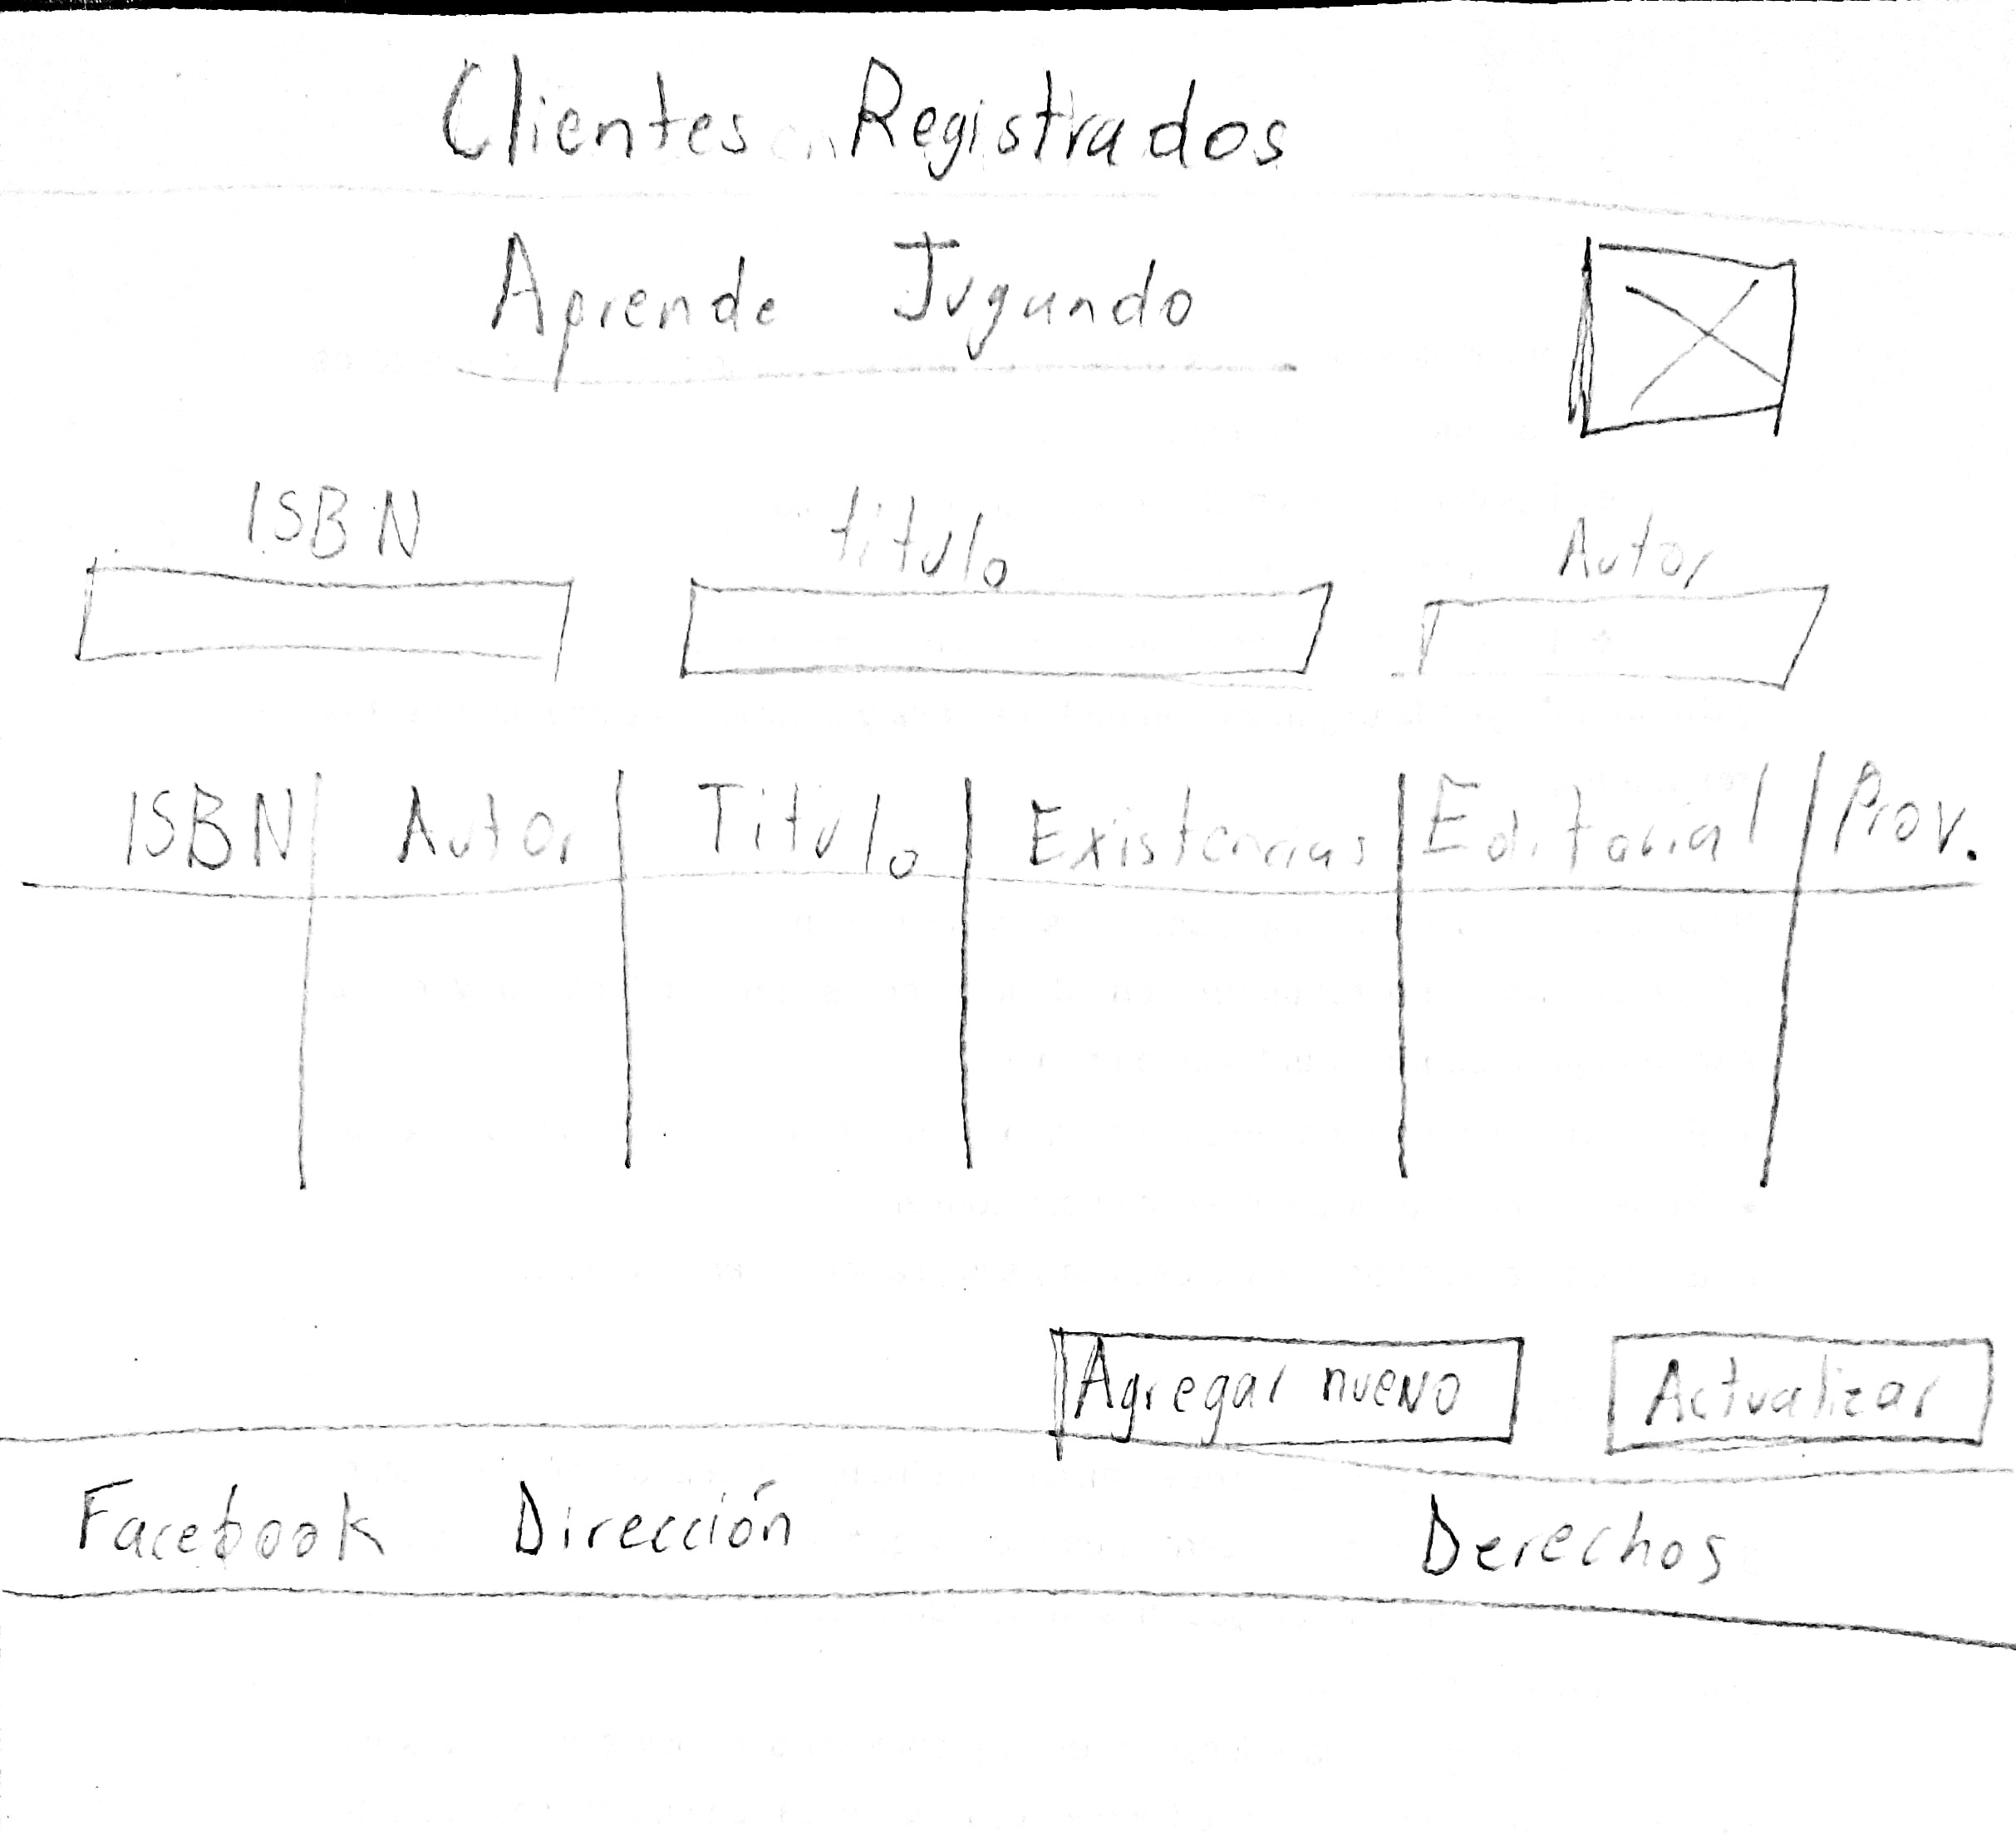 Clientes Registrados
Aprende Jugando
ISBN titulo Autor
ISBN Autor Titulo Existencias Editorial Prov.
Agregar nuevo Actualizar
Facebook Dirección Derechos